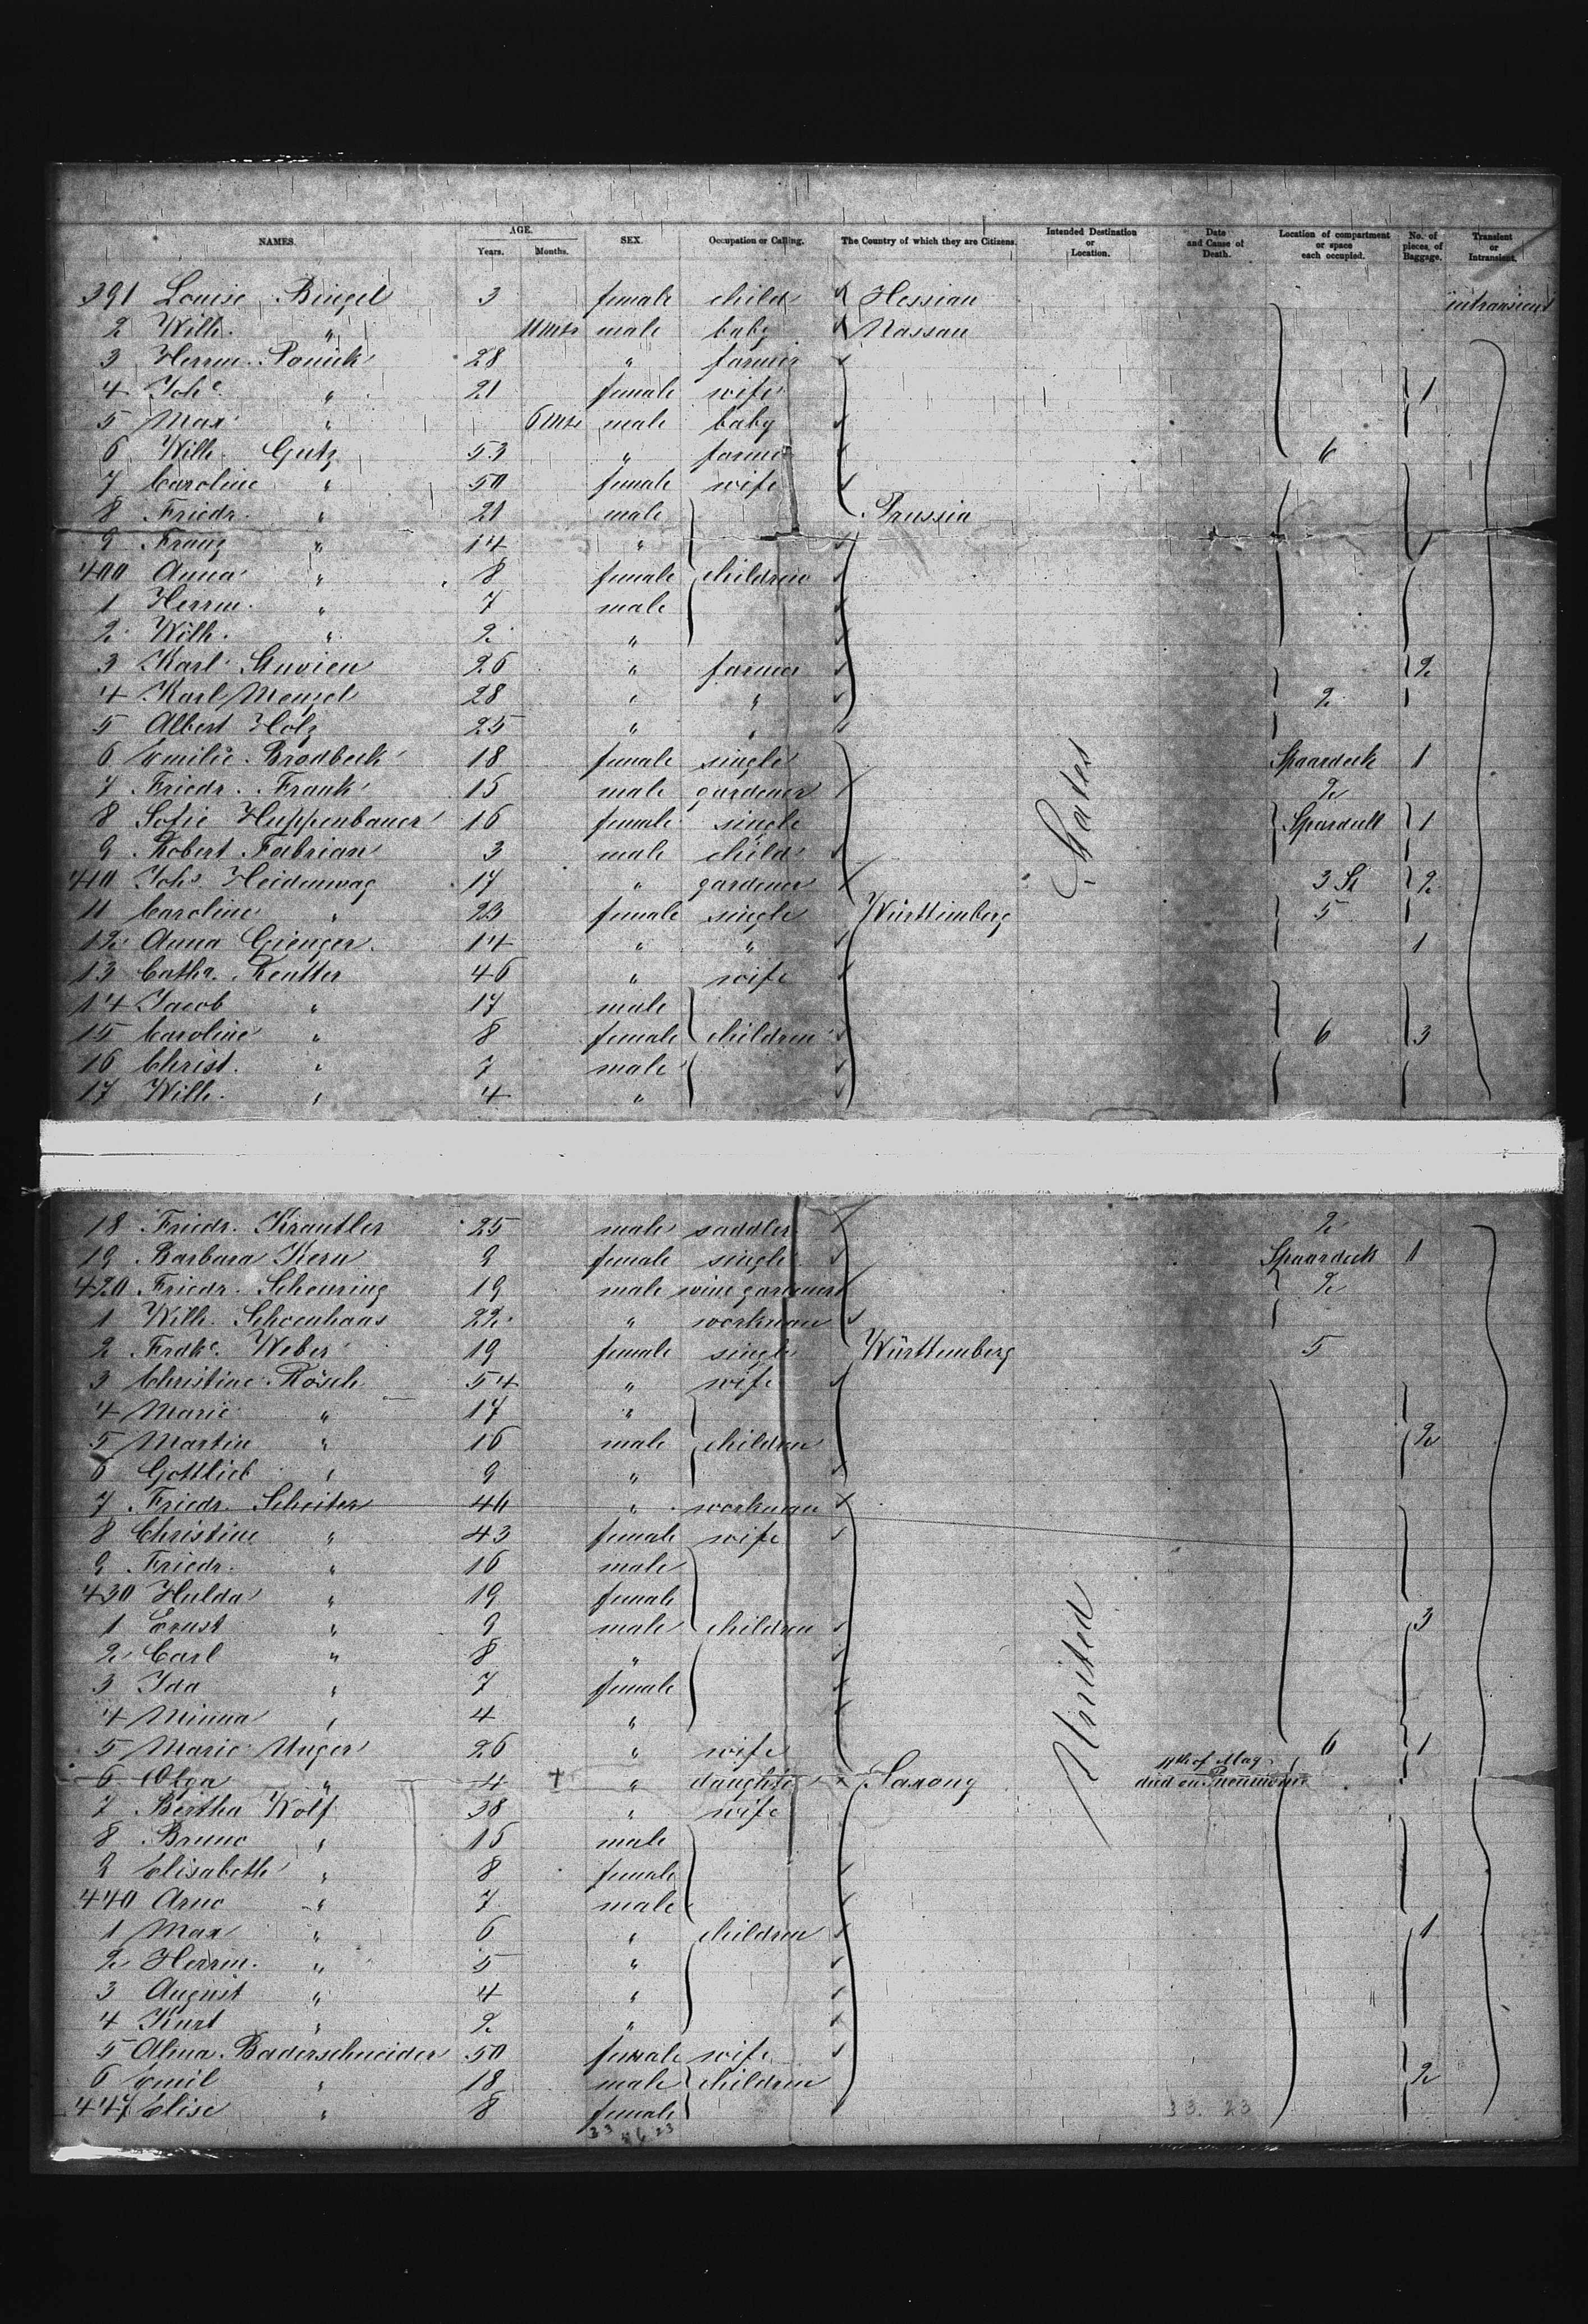 NAMES. AGE. Years. Months. SEX. Occupation or Calling. The Country of which they are Citizens. Intended Destination or Location. Date and Cause of Death. Location of compartment or space each occupied. No. of pieces of Baggage. Transient or Intransient.
391 Louise Bingel 3 female child Hessian intransient
2 Wilh. " 11 Mts male baby Nassau
3 Herrm. Ponick 28 " farmer
4 Johe " 21 female wife 1
5 Max " 6 Mts male baby
6 Wilh. Gutz 53 " farmer 6
7 Caroline " 50 female wife
8 Friedr. " 21 male Prussia
9 Franz " 14 " 1
400 Anna " 8 female children
1 Herrm. " 7 male
2 Wilh. " 2 "
3 Karl 26 " farmer 2
4 Karl Menzel 28 " " 2
5 Albert Holz 25 " "
6 Emilie Brodbeck 18 female single Spaardeck 1
7 Friedr. Frank 15 male gardener 2
8 Sofie Huppenbauer 16 female single Spardeck 1
9 Robert Fabrian 3 male child States
410 Johs Heidenwag 17 " gardener 3 St 2
11 Caroline " 23 female single Württemberg 5
12 Anna Gienger 14 " " 1
13 Cathr. Reutter 46 " wife
14 Jacob " 17 male
15 Caroline " 8 female children 6 3
16 Christ. " 7 male
17 Wilh. " 4 "
18 Friedr. Krautler 25 male saddler 2
19 Barbara Kern 9 female single Spaardeck 1
420 Friedr. Scheuring 19 male wine gardener 2
1 Wilh. Schoenhaas 22 " workman
2 Frdke. Weber 19 female single Württemberg 5
3 Christine Rösch 54 " wife
4 Marie " 17 "
5 Martin " 16 male children 2
6 Gottlieb " 9 "
7 Friedr. Scheiter 46 " workman
8 Christine " 43 female wife
9 Friedr. " 16 male
430 Hulda " 19 female
1 Ernst " 9 male children 3
2 Carl " 8 "
3 Ida " 7 female United
4 Minna " 4 "
5 Marie Unger 26 " wife 6 1
6 Olga " 4 + " daughter Saxony 11th of May died on Pneumonie
7 Bertha Wolf 38 " wife
8 Bruno " 15 male
9 Elisabeth " 8 female
440 Arno " 7 male
1 Max " 6 " children 1
2 Herrm. " 5 "
3 August " 4 "
4 Kurt " 2 "
5 Alma Baderschneider 50 female wife
6 Emil " 18 male children 2
447 Elise " 8 female
33. 23